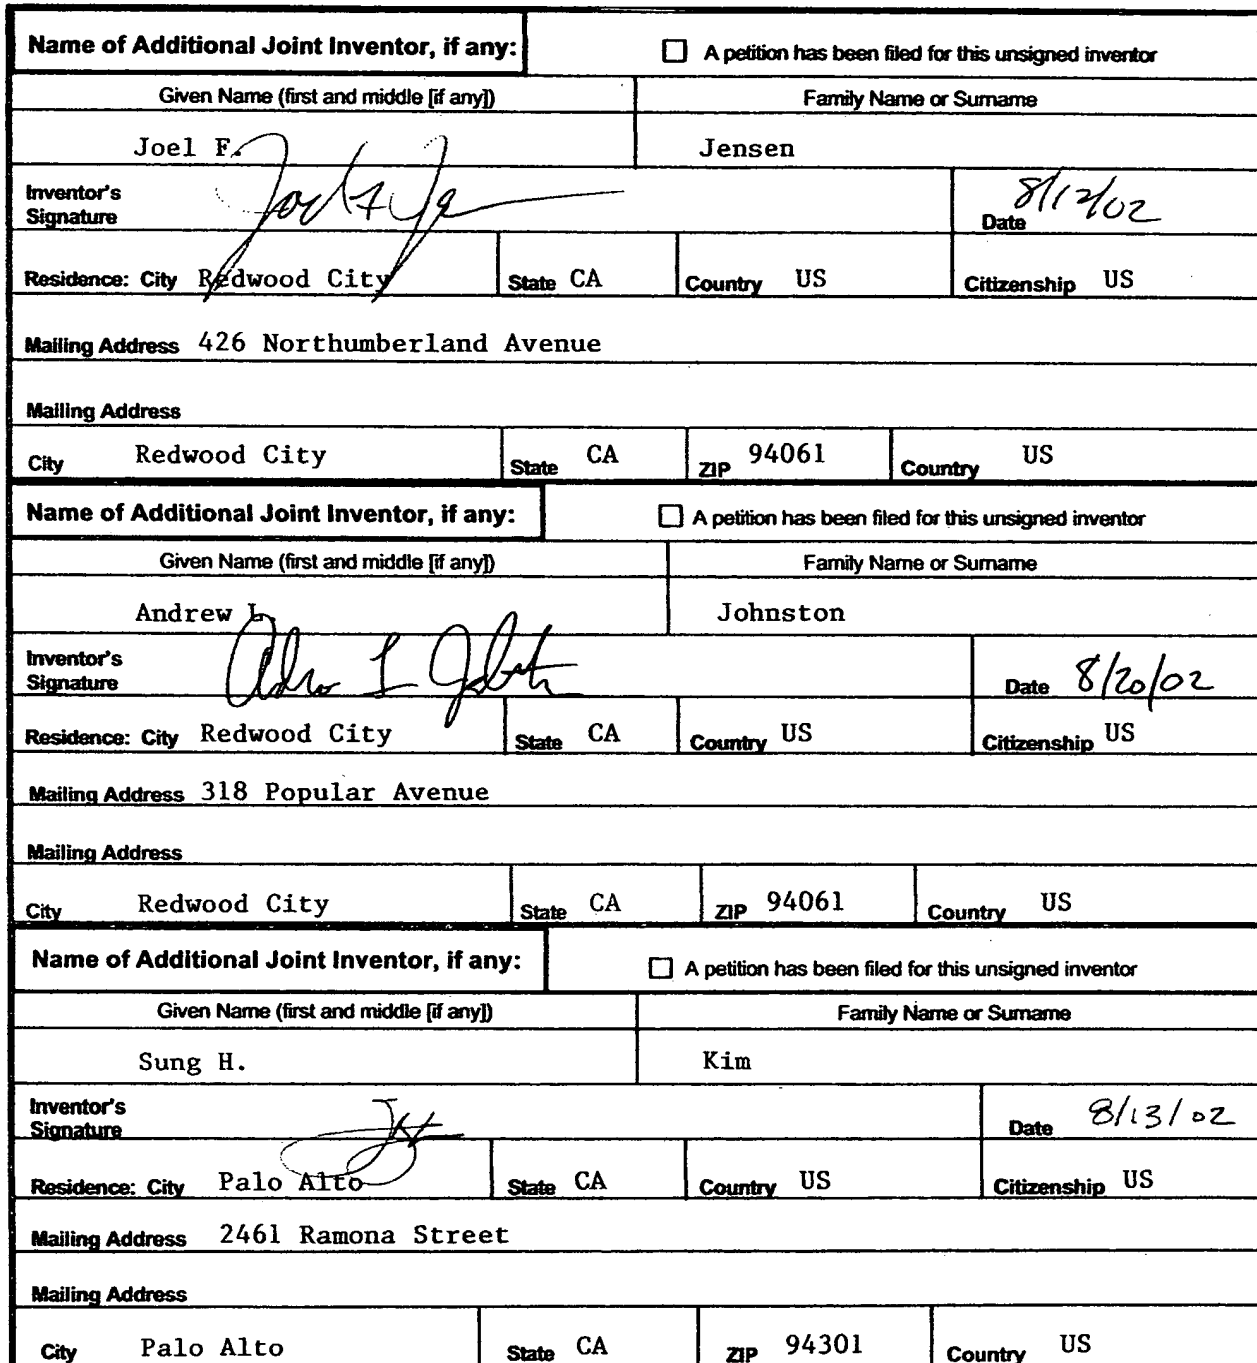 Name of Additional Joint Inventor, if any: A petition has been filed for this unsigned inventor
Given Name (first and middle [if any]) Family Name or Surname
Joel F. Jensen
Inventor's
Signature Date 8/12/02
Residence: City Redwood City State CA Country US Citizenship US
Mailing Address 426 Northumberland Avenue
Mailing Address
City Redwood City State CA ZIP 94061 Country US
Name of Additional Joint Inventor, if any: A petition has been filed for this unsigned inventor
Given Name (first and middle [if any]) Family Name or Surname
Andrew L. Johnston
Inventor's
Signature Date 8/20/02
Residence: City Redwood City State CA Country US Citizenship US
Mailing Address 318 Popular Avenue
Mailing Address
City Redwood City State CA ZIP 94061 Country US
Name of Additional Joint Inventor, if any: A petition has been filed for this unsigned inventor
Given Name (first and middle [if any]) Family Name or Surname
Sung H. Kim
Inventor's
Signature Date 8/13/02
Residence: City Palo Alto State CA Country US Citizenship US
Mailing Address 2461 Ramona Street
Mailing Address
City Palo Alto State CA ZIP 94301 Country US